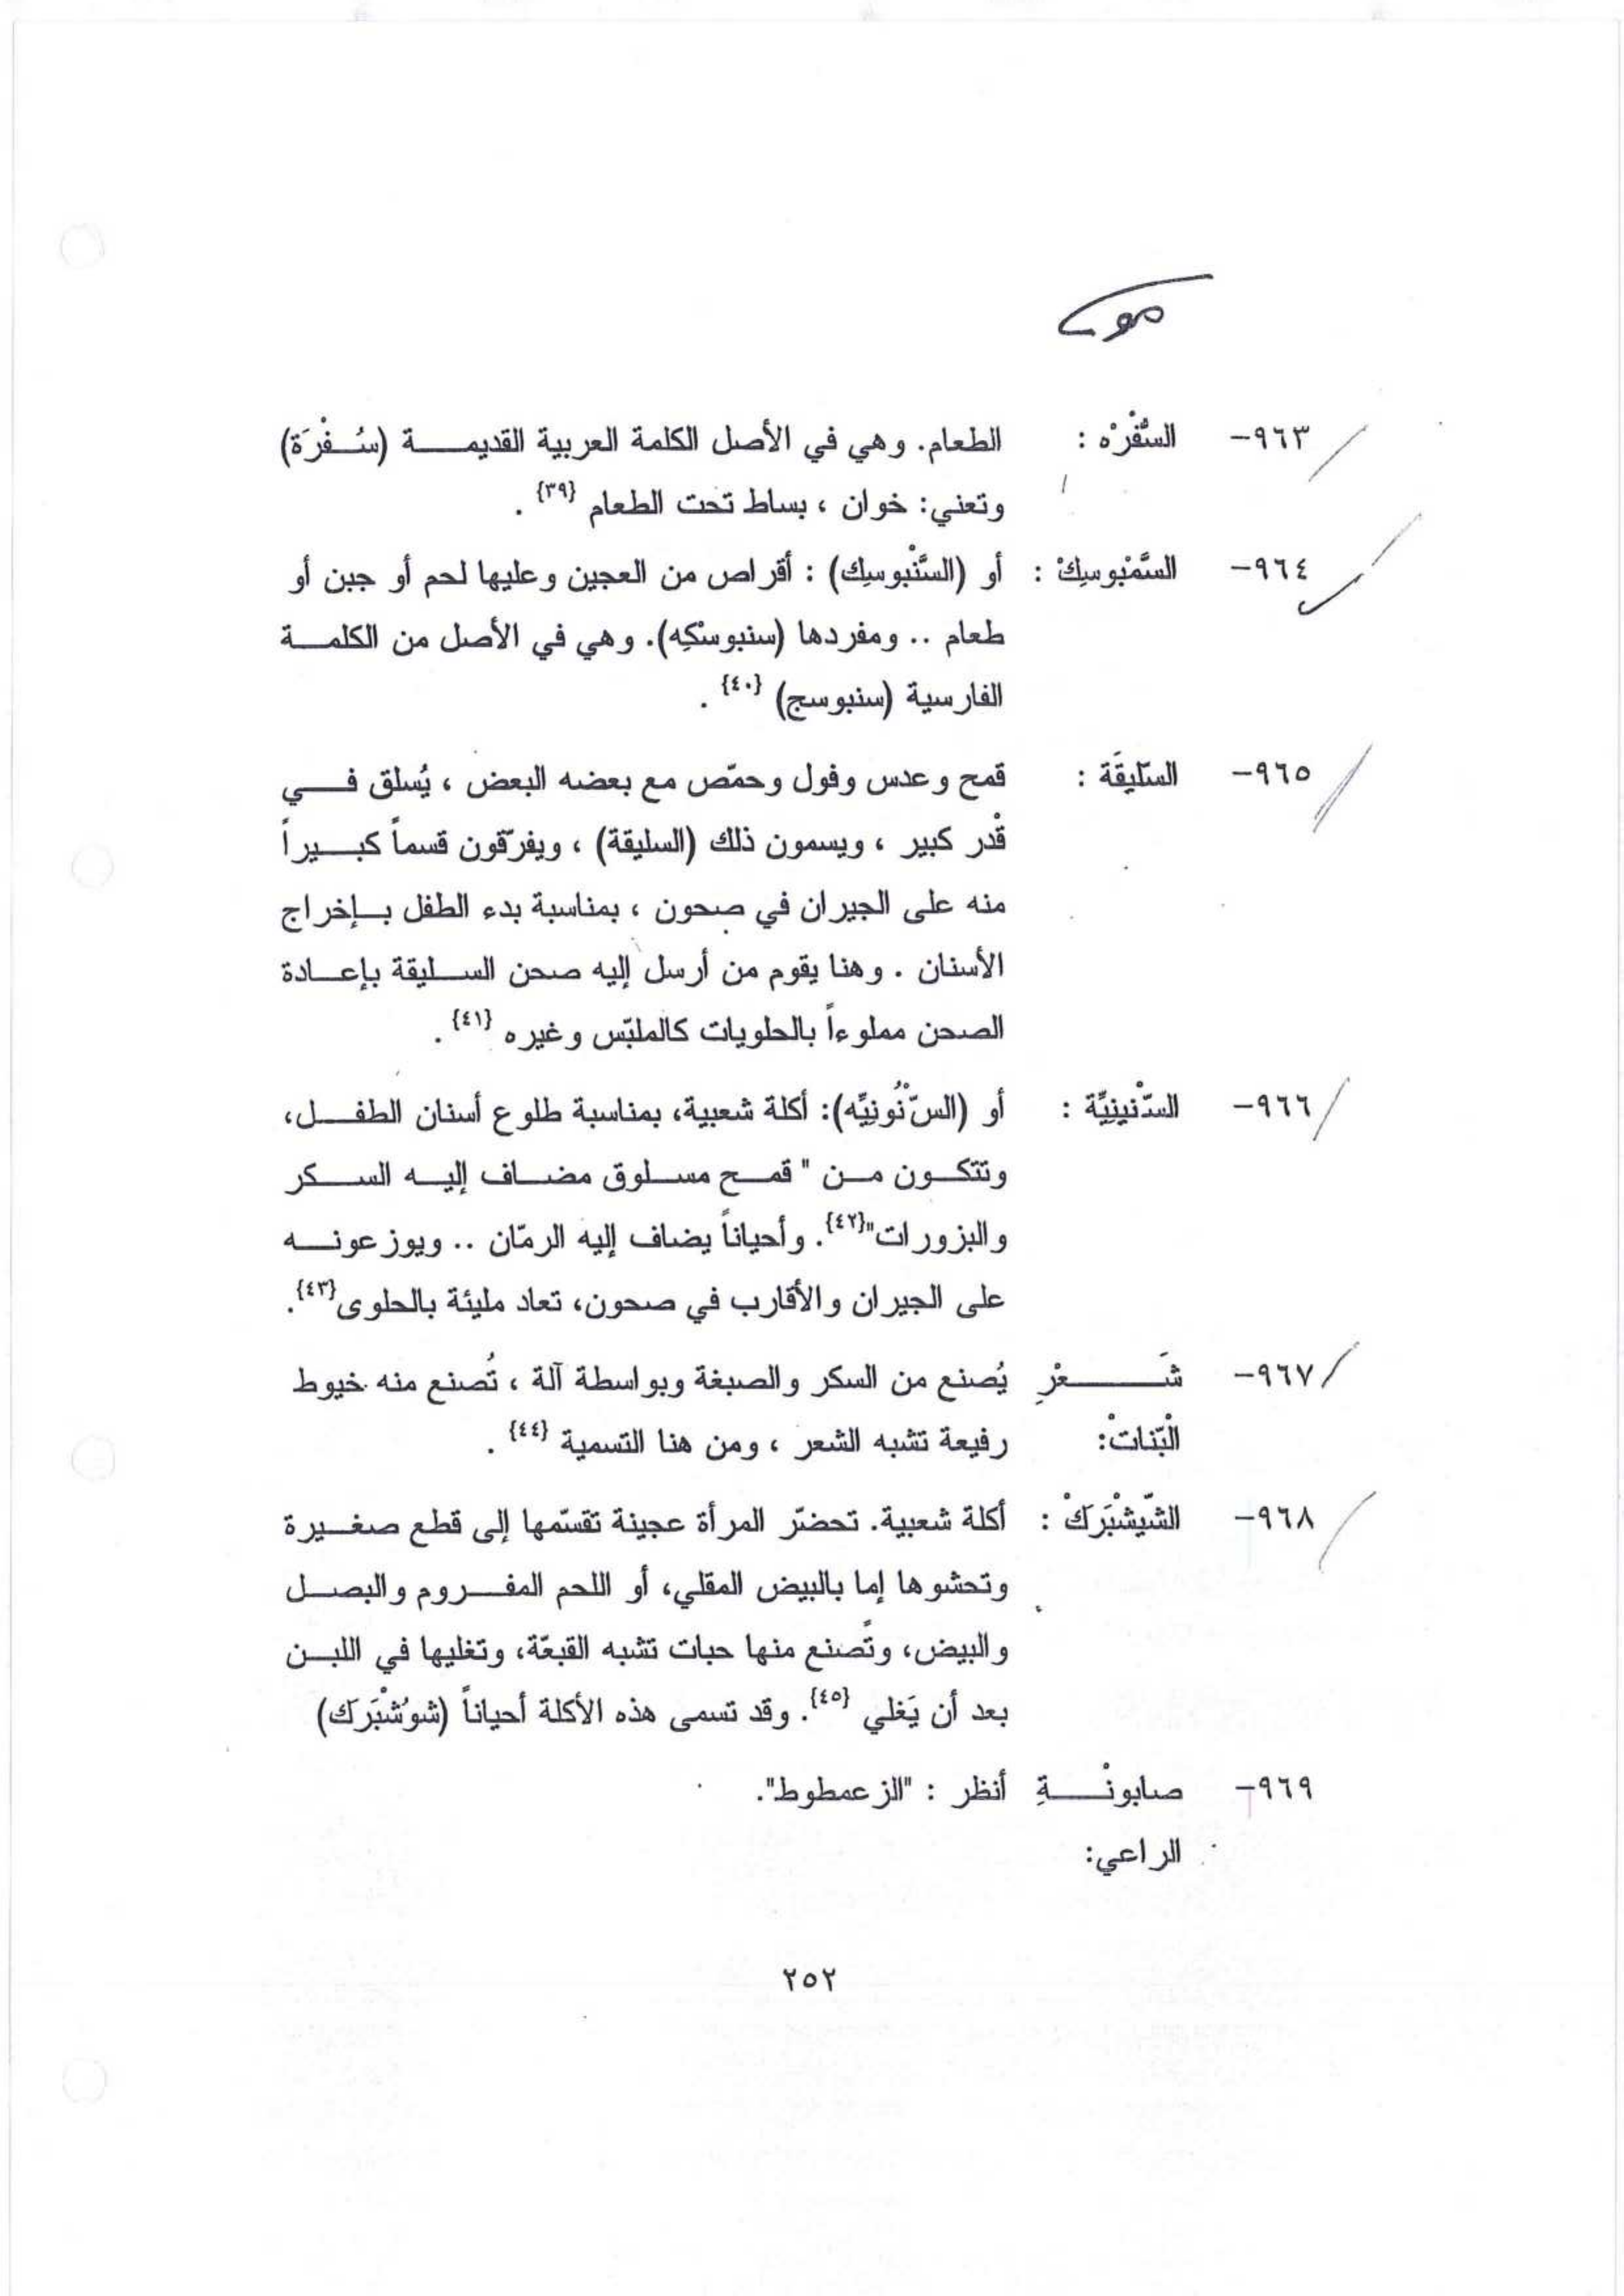 ٩٦٣- السُّفْرْه : الطعام. وهي في الأصل الكلمة العربية القديمة (سُفْرَة)
وتعني: خوان ، بساط تحت الطعام {٣٩} .
٩٦٤- السَّمْبوسِكْ : أو (السَّنْبوسِك) : أقراص من العجين وعليها لحم أو جبن أو
طعام .. ومفردها (سنبوسْكِه). وهي في الأصل من الكلمة
الفارسية (سنبوسج) {٤٠} .
٩٦٥- السّليقَة : قمح وعدس وفول وحمّص مع بعضه البعض ، يُسلق في
قْدر كبير ، ويسمون ذلك (السليقة) ، ويفرّقون قسماً كبيراً
منه على الجيران في صحون ، بمناسبة بدء الطفل بإخراج
الأسنان . وهنا يقوم من أرسل إليه صحن السليقة بإعادة
الصحن مملوءاً بالحلويات كالملبّس وغيره {٤١} .
٩٦٦- السّنْينِيَّة : أو (السّْنُونِيَّه): أكلة شعبية، بمناسبة طلوع أسنان الطفل،
وتتكون من " قمح مسلوق مضاف إليه السكر
والبزورات"{٤٢}. وأحياناً يضاف إليه الرمّان .. ويوزعونه
على الجيران والأقارب في صحون، تعاد مليئة بالحلوى{٤٣}.
٩٦٧- شَعْرِ يُصنع من السكر والصبغة وبواسطة آلة ، تُصنع منه خيوط
الْبّناتْ: رفيعة تشبه الشعر ، ومن هنا التسمية {٤٤} .
٩٦٨- الشّيشْبَرَكْ : أكلة شعبية. تحضرّ المرأة عجينة تقسّمها إلى قطع صغيرة
وتحشوها إما بالبيض المقلي، أو اللحم المفروم والبصل
والبيض، وتَصنع منها حبات تشبه القبعّة، وتغليها في اللبن
بعد أن يَغلي {٤٥}. وقد تسمى هذه الأكلة أحياناً (شوُشْبَرَك)
٩٦٩- صابونْةِ أنظر : "الزعمطوط".
الراعي:
٢٥٢